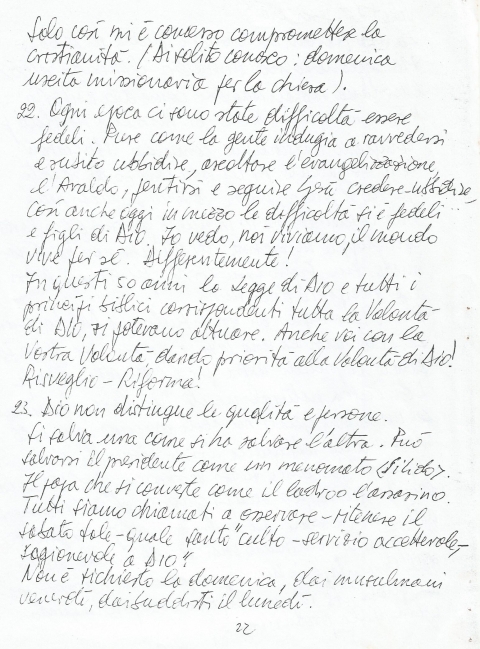 Solo così mi è concesso compromettere la
cristianità. (Di solito conosco: domenica
uscita missionaria per la chiesa).
22. Ogni epoca ci sono state difficoltà essere
fedeli. Pure come la gente indugia a ravvedersi
e subito ubbidire, ascoltare l'evangelizzazione,
l'Araldo, pentirsi e seguire Gesù credere-ubbidire
così anche oggi in mezzo le difficoltà si è fedeli
e figli di Dio. Io vedo, noi viviamo, il mondo
vive per sé. Differentemente!
In questi 50 anni la Legge di Dio e tutti i
principi biblici corrispondenti tutta la Volontà
di Dio, si potevano attuare. Anche voi con la
Vostra Volontà dando priorità alla Volontà di Dio!
Risveglio - Riforma!
23. Dio non distingue le qualità e persone.
Si salva una come si ha salvare l'altra. Può
salvarsi il presidente come un menomato
Il papa che si converte come il ladro o l'assassino.
Tutti siamo chiamati a osservare - ritenere il
sabato tale - quale santo "culto - servizio accettevole,-
ragionevole a Dio".
Non è richiesto la domenica, dai musulmani
venerdì, dai buddisti il lunedì.
22